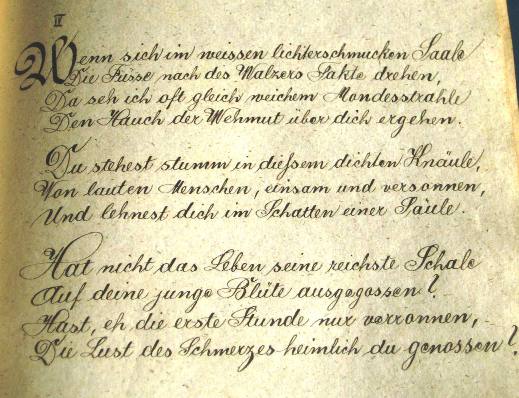 II
Wenn sich im weissen lichterschmucken Saale
Die Füsse nach des Walzers Takte drehen,
Da seh ich oft gleich weichem Mondesstrahle
Den Hauch der Wehmut über dich ergehen.
Du stehest stumm in diesem dichten Knäule,
Von lauten Menschen, einsam und versonnen,
Und lehnest dich im Schatten einer Säule.
Hat nicht das Leben seine reichste Schale
Auf deine junge Blüte ausgegossen?
Hast, eh die erste Stunde nur verronnen,
Die Lust des Schmerzes heimlich du genossen?